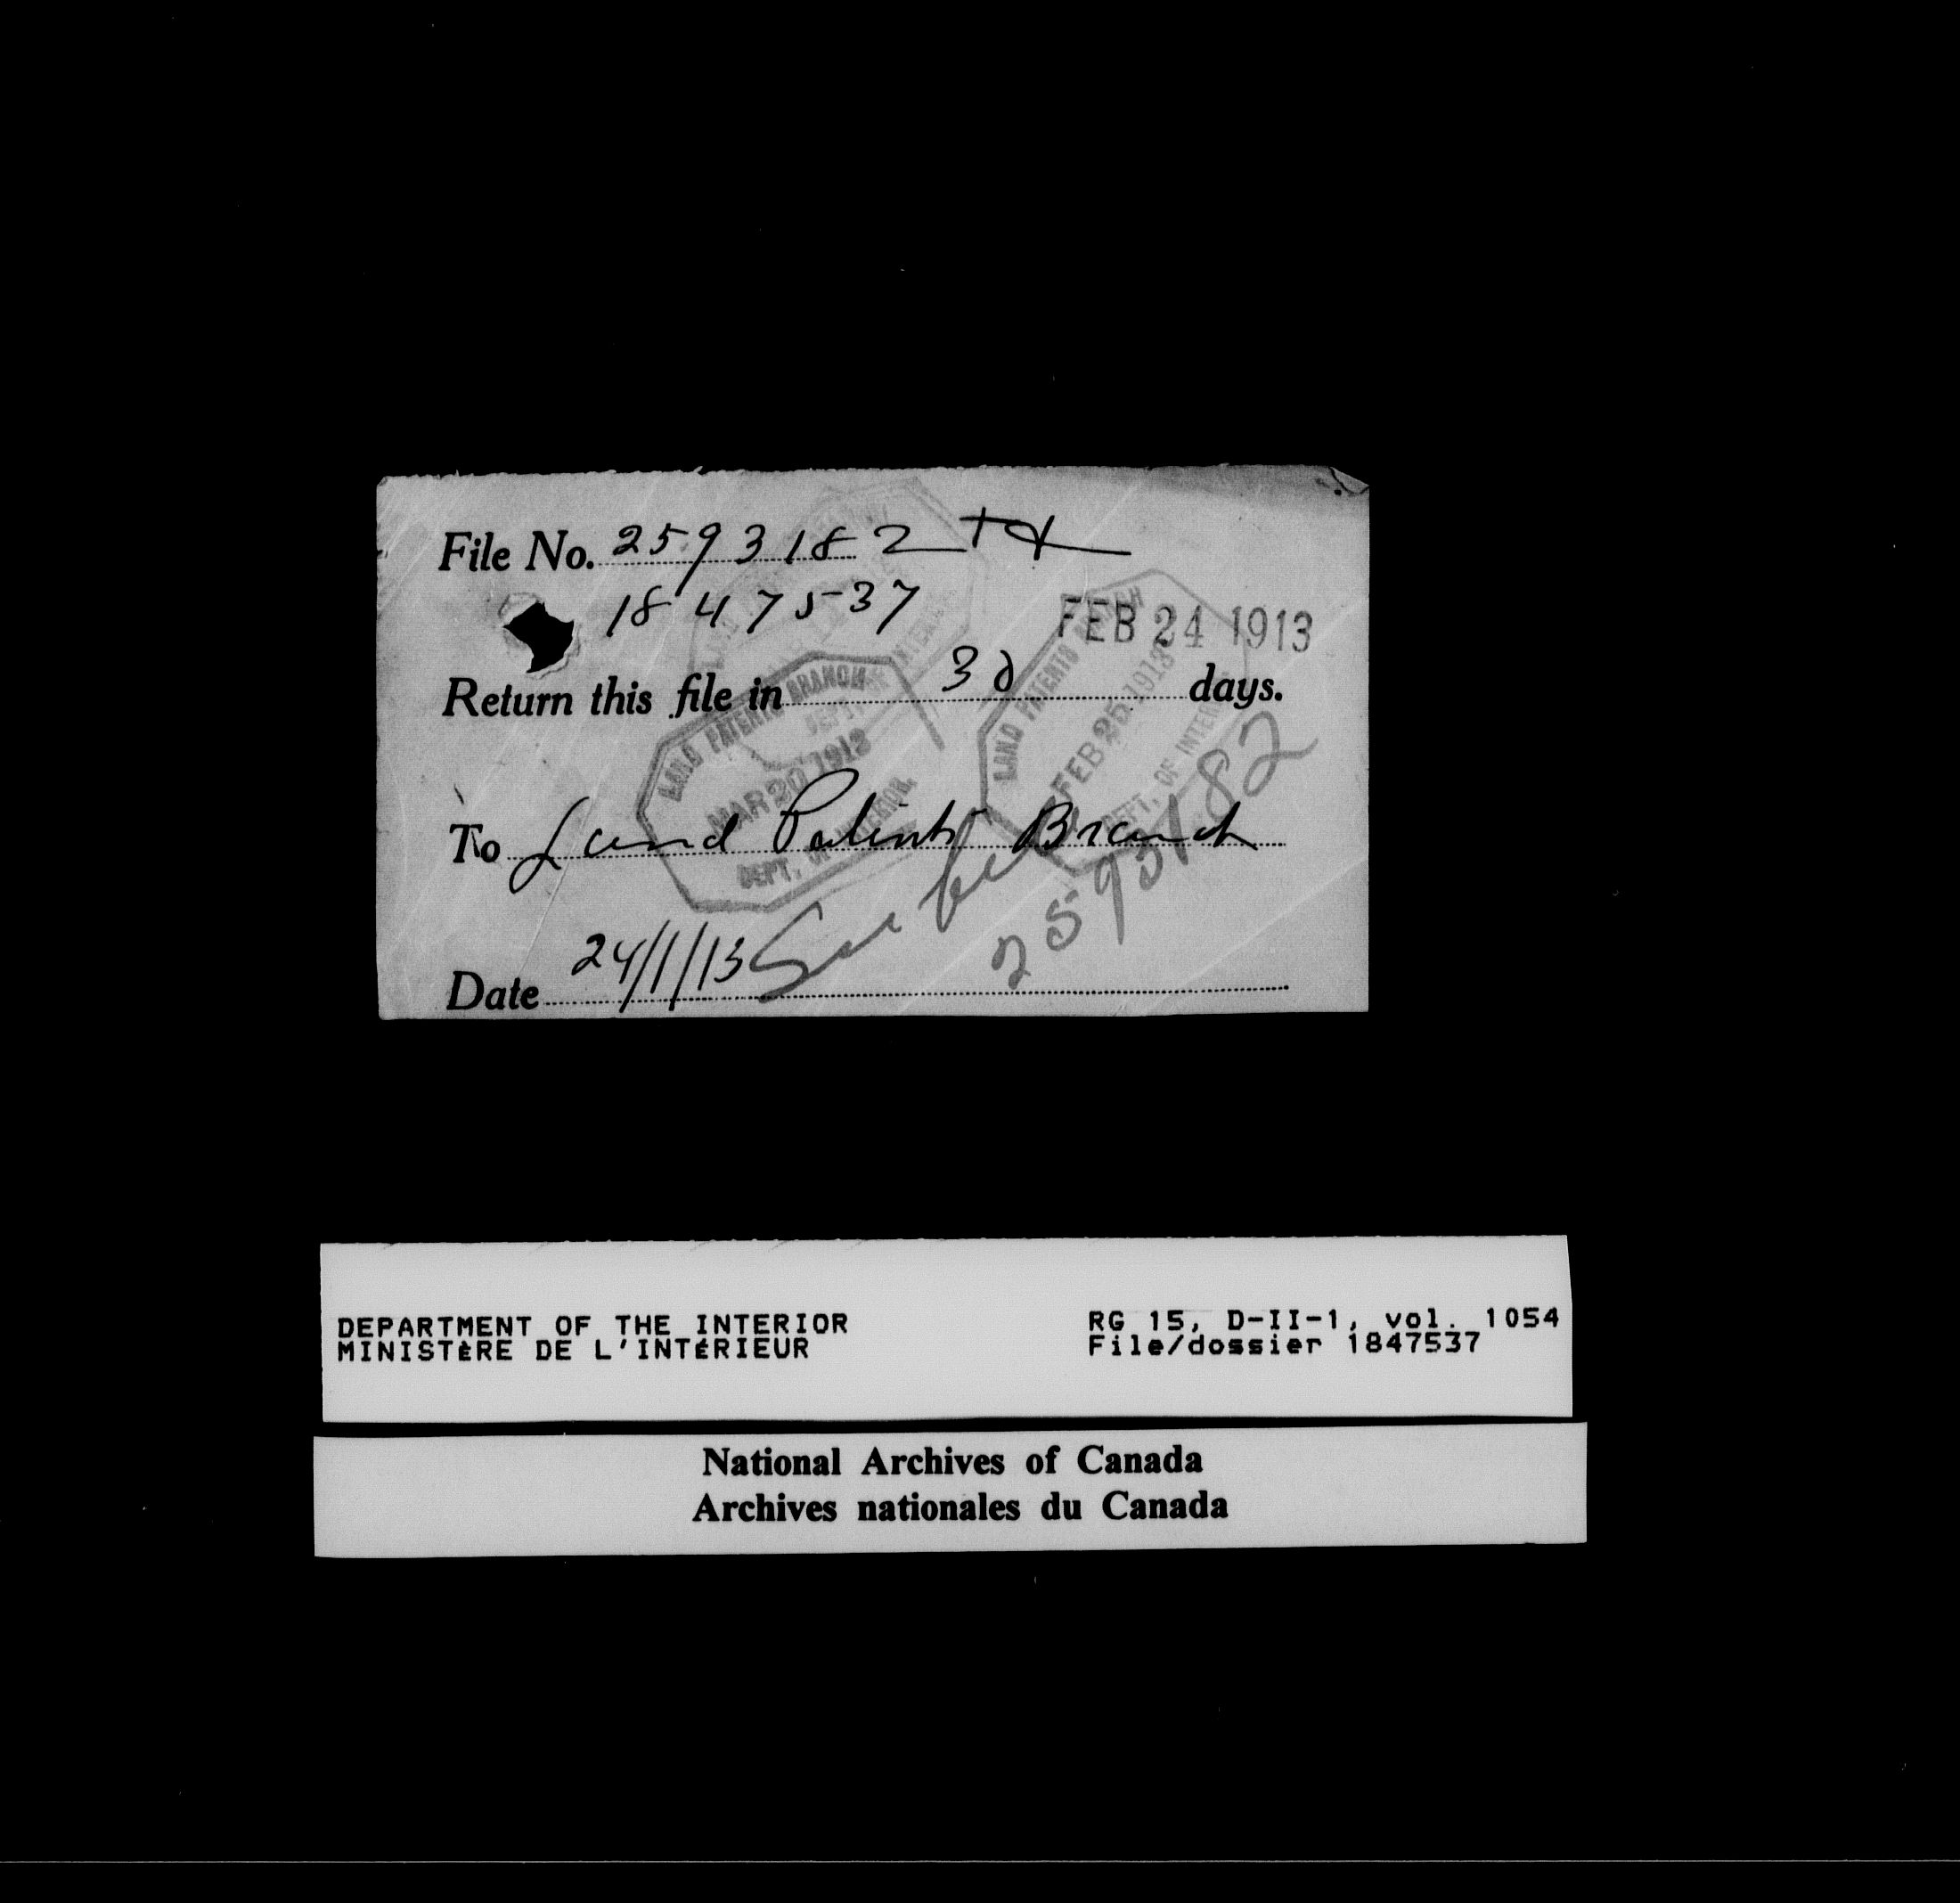 File No. 2593182 T&
1847537
FEB 24 1913
Return this file in 30 days.
LAND PATENTS BRANCH
MAR 20 1913
DEPT. OF INTERIOR.
LAND PATENTS BRANCH
FEB 25 1913
DEPT. OF INTERIOR
To Land Patents Branch
See file
2593182
Date 24/1/13
DEPARTMENT OF THE INTERIOR
MINISTÈRE DE L'INTÉRIEUR
RG 15, D-II-1, vol. 1054
File/dossier 1847537
National Archives of Canada
Archives nationales du Canada